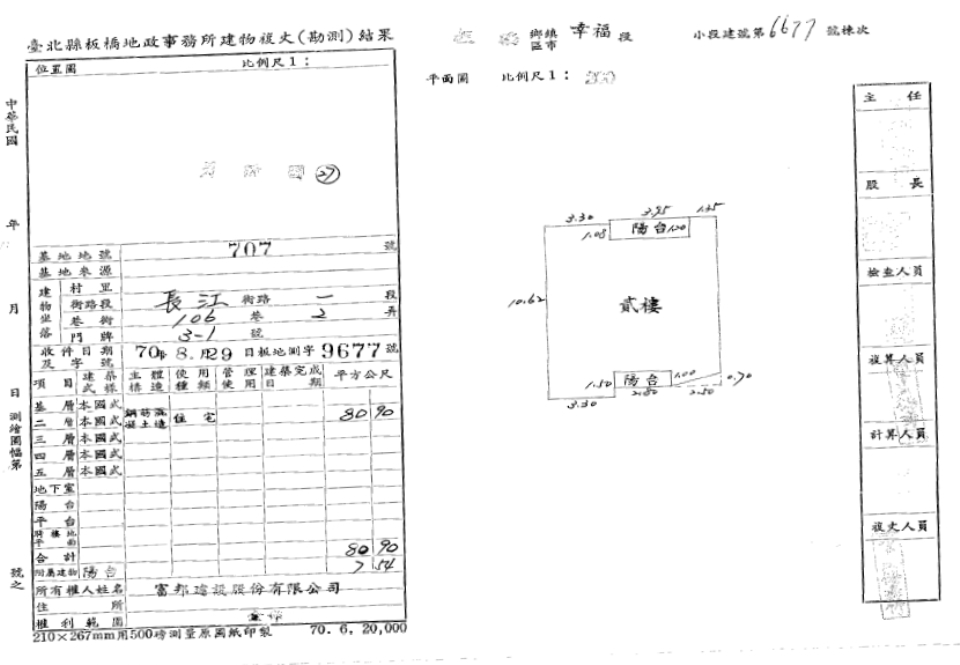 臺北縣板橋地政事務所建物複丈(勘測)結果
位置圖 比例尺1:
㉗
中華民國 年 月 日 測繪圖幅第 號之
基地地號 707 號
基地來源
建物坐落
村里
街路段 長江 街路 一 段
巷街 106 巷 2 弄
門牌 3-1 號
收件日期及字號 70年 8月 29日板地測字9677號
項目 建築式樣 主體構造 使用種類 管理使用 建築完成日期 平方公尺
基層 本國式
二層 本國式 鋼筋混凝土造 住宅 80 90
三層 本國式
四層 本國式
五層 本國式
地下室
陽台
平台
騎樓地平面
合計 80 90
附屬建物 陽台 7 54
所有權人姓名 富邦建設股份有限公司
住所
權利範圍
210×267mm用500磅測量原圖紙印製 70. 6. 20,000
鄉鎮區市 幸福段 小段建號第6677號棟次
平面圖 比例尺1:
3.30 3.95 1.35
1.03 陽台 1.00
10.62 貳樓
1.50 陽台 1.00 0.70
3.30 2.80 2.50
主任
股長
檢查人員
複算人員
計算人員
複丈人員